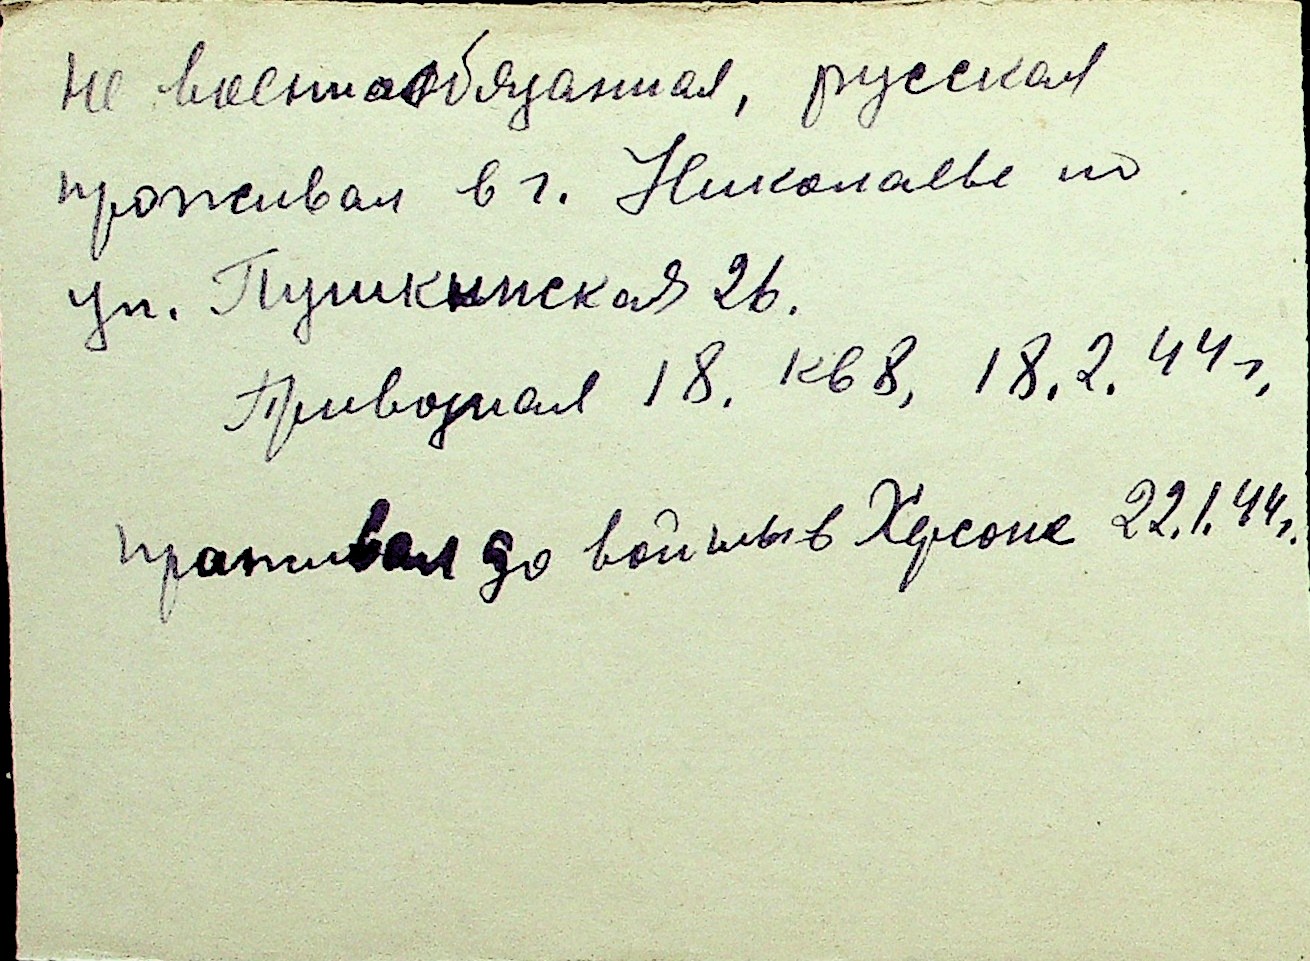 не военнообязанная, русская
проживал в г. Николаеве по
ул. Пушкинская 26.
Приводная 18. кв 8, 18.2.44 г,
проживал до войны в Херсоне 22.1.44г.